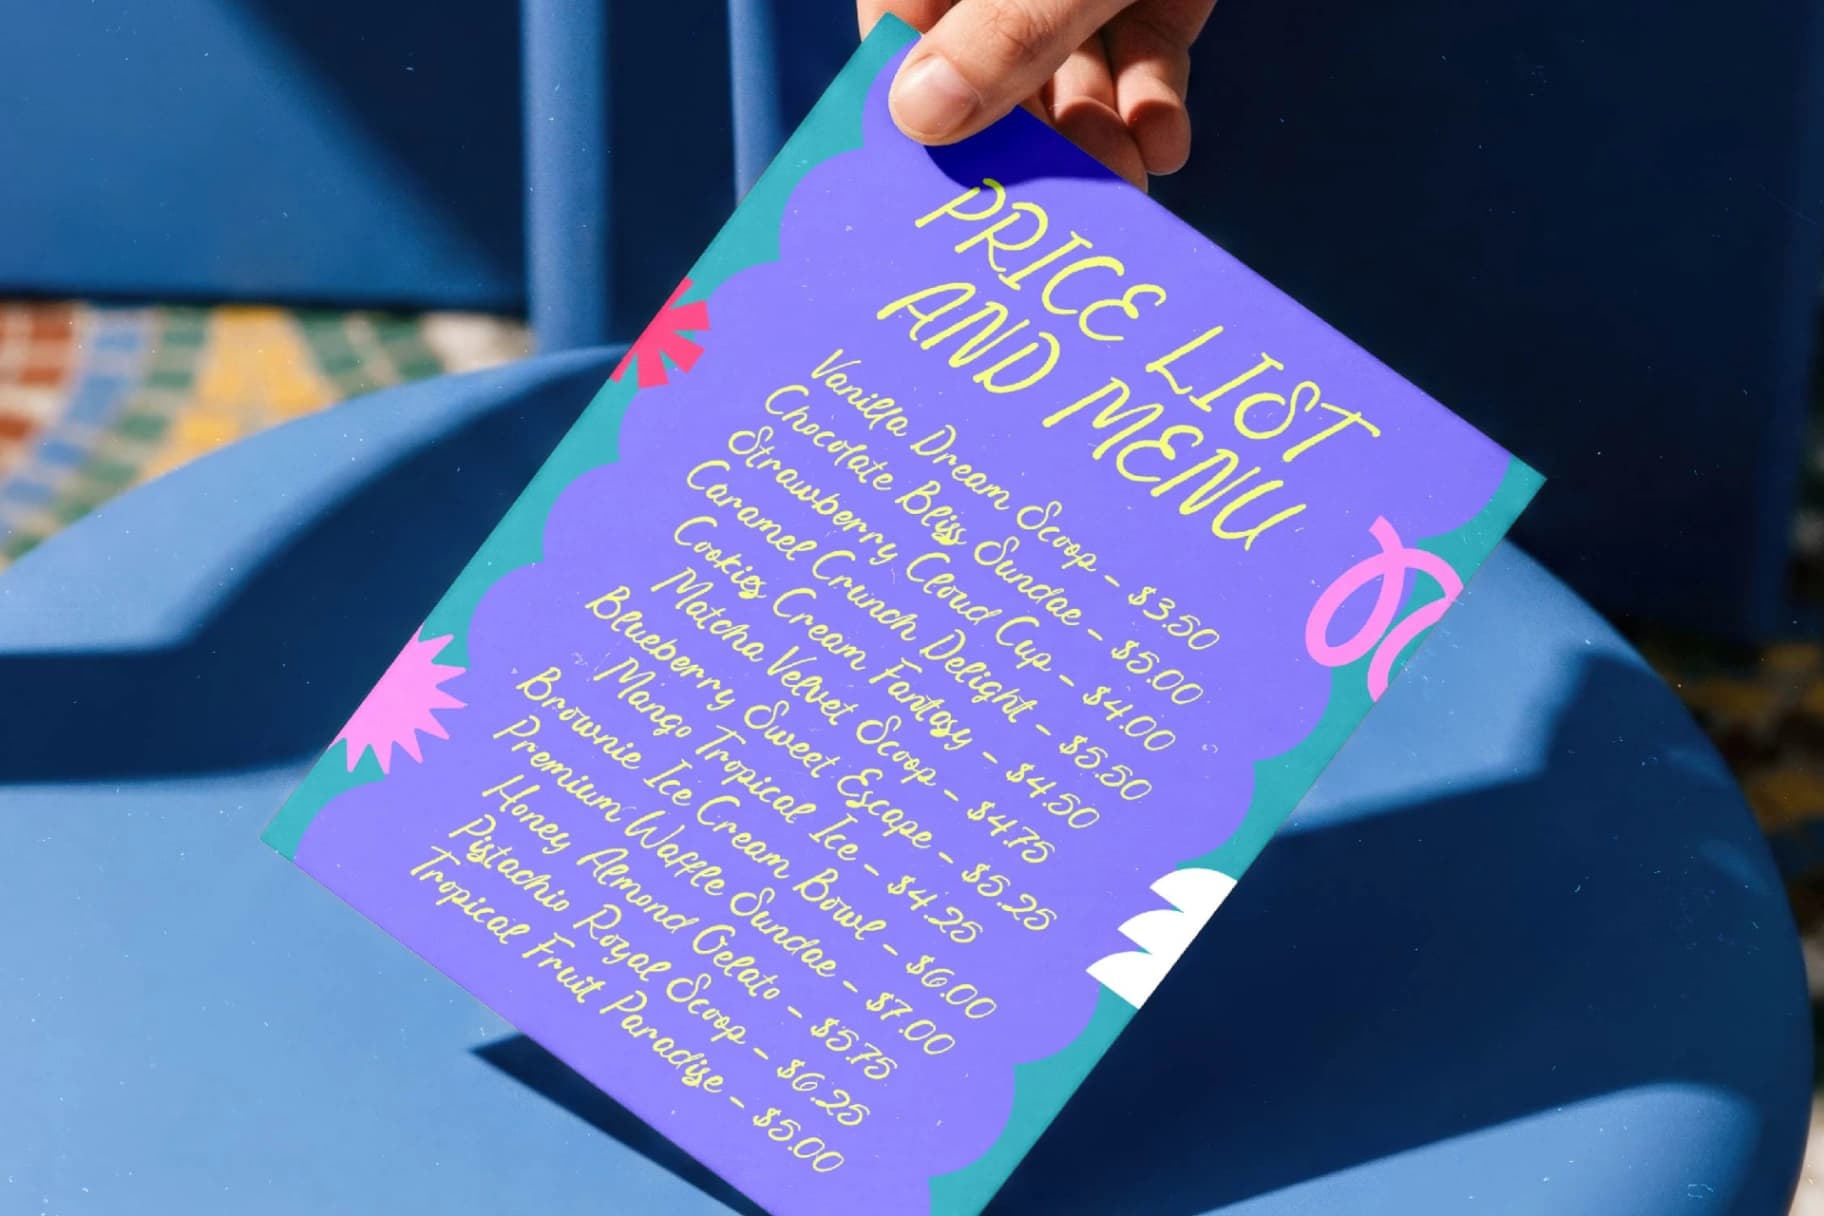 PRICE LIST
AND MENU
Vanilla Dream Scoop - $3.50
Chocolate Bliss Sundae - $5.00
Strawberry Cloud Cup - $4.00
Caramel Crunch Delight - $5.50
Cookies Cream Fantasy - $4.50
Matcha Velvet Scoop - $4.75
Blueberry Sweet Escape - $5.25
Mango Tropical Ice - $4.25
Brownie Ice Cream Bowl - $6.00
Premium Waffle Sundae - $7.00
Honey Almond Gelato - $5.75
Pistachio Royal Scoop - $6.25
Tropical Fruit Paradise - $5.00